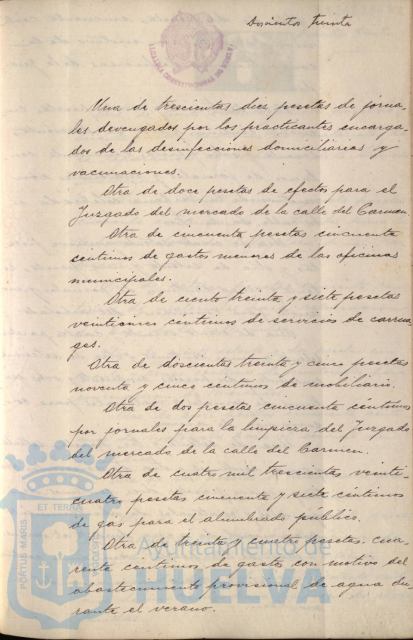 Doscientos treinta
Una de trescientas diez pesetas de jorna-
les devengados por los practicantes encarga-
dos de las desinfecciones domiciliarias y
vacunaciones.
Otra de doce pesetas de efectos para el
Juzgado del mercado de la calle del Carmen.
Otra de cincuenta pesetas cincuenta
centimos de gastos menores de las oficinas
municipales.
Otra de ciento treinta y siete pesetas
veinticinco centimos de servicios de carrua-
ges.
Otra de doscientas treinta y cinco pesetas
noventa y cinco centimos de mobiliario.
Otra de dos pesetas cincuenta céntimos
por jornales para la limpieza del Juzgado
del mercado de la calle del Carmen.
Otra de cuatro mil trescientas veinti-
cuatro pesetas cincuenta y siete céntimos
de gas para el alumbrado público.
Otra de treinta y cuatro pesetas cua-
renta centimos de gastos con motivo del
abastecimiento provisional de agua du-
rante el verano.
PORTUS MARIS
ET TERRÆ
Ayuntamiento de
HUELVA